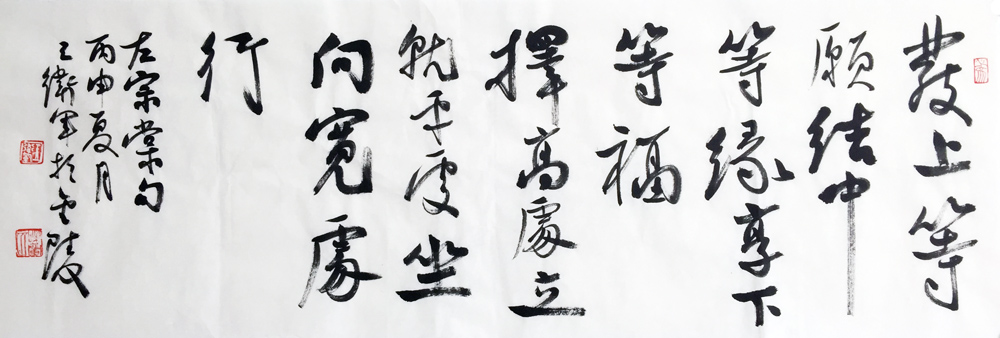 發上等
願結中
等緣享下
等福
擇高處立
就平處坐
向寬處
行
左宗棠句
丙申夏月
王衛軍於金陵